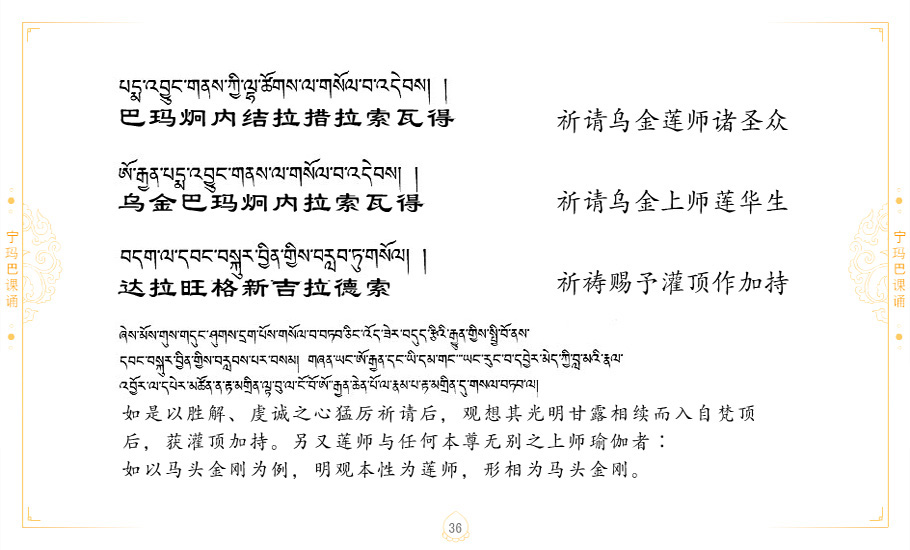 པདྨ་འབྱུང་གནས་ཀྱི་ལྷ་ཚོགས་ལ་གསོལ་བ་འདེབས། །
巴玛炯内结拉措拉索瓦得
祈请乌金莲师诸圣众
ཨོ་རྒྱན་པདྨ་འབྱུང་གནས་ལ་གསོལ་བ་འདེབས། །
乌金巴玛炯内拉索瓦得
祈请乌金上师莲华生
བདག་ལ་དབང་བསྐུར་བྱིན་གྱིས་བརླབ་ཏུ་གསོལ། །
达拉旺格新吉拉德索
祈祷赐予灌顶作加持
ཞེས་མོས་གུས་གདུང་ཤུགས་དྲག་པོས་གསོལ་བ་བཏབ་ཅིང་འོད་ཟེར་བདུད་རྩིའི་རྒྱུན་གྱིས་སྤྱི་བོ་ནས་
དབང་བསྐུར་བྱིན་གྱིས་བརླབས་པར་བསམ། གཞན་ཡང་ཨོ་རྒྱན་དང་ཡི་དམ་གང་ཡང་རུང་བ་དབྱེར་མེད་ཀྱི་བླ་མའི་རྣལ་
འབྱོར་ལ་དཔེར་མཚོན་ན་རྟ་མགྲིན་ལྟ་བུ་ལ་ངོ་བོ་ཨོ་རྒྱན་ཆེན་པོ་ལ་རྣམ་པ་རྟ་མགྲིན་དུ་གསལ་བཏབ་ལ།
如是以胜解、虔诚之心猛厉祈请后，观想其光明甘露相续而入自梵顶
后，获灌顶加持。另又莲师与任何本尊无别之上师瑜伽者：
如以马头金刚为例，明观本性为莲师，形相为马头金刚。
宁玛巴课诵
宁玛巴课诵
36